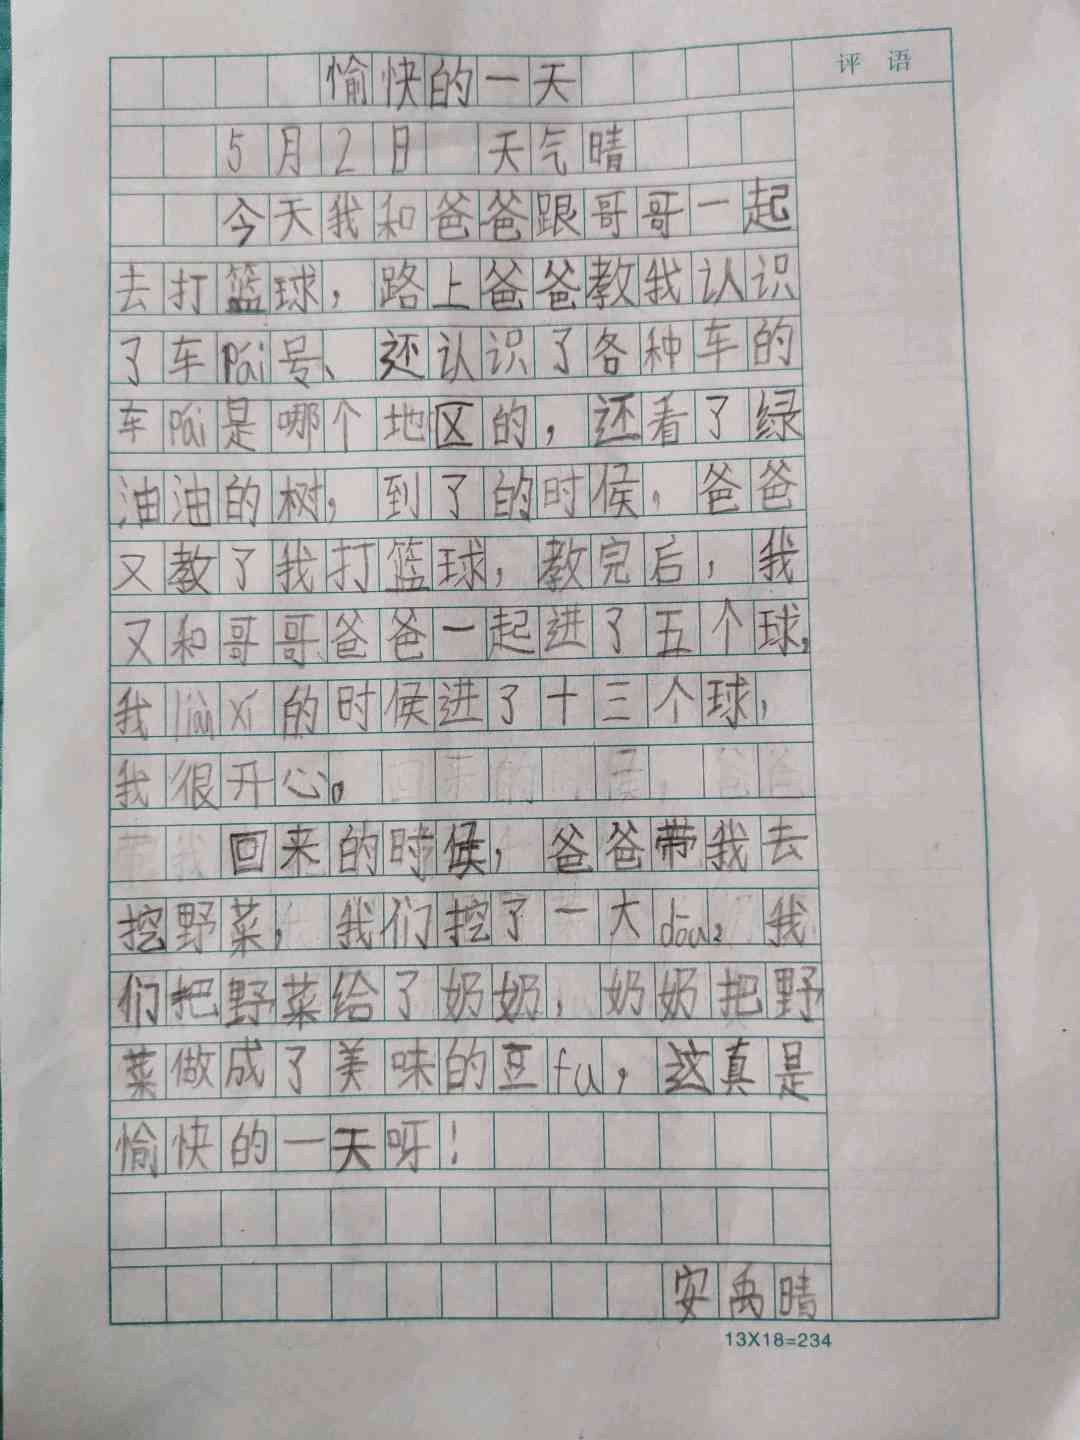 评语
愉快的一天
5月2日 天气晴
今天我和爸爸跟哥哥一起
去打篮球，路上爸爸教我认识
了车pái号、还认识了各种车的
车pái是哪个地区的，还看了绿
油油的树，到了的时候，爸爸
又教了我打篮球，教完后，我
又和哥哥爸爸一起进了五个球，
我liàn xí的时候进了十三个球，
我很开心。
回来的时候，爸爸带我去
挖野菜，我们挖了一大dōu，我
们把野菜给了奶奶，奶奶把野
菜做成了美味的豆fu，这真是
愉快的一天呀！
安禹晴
13X18=234